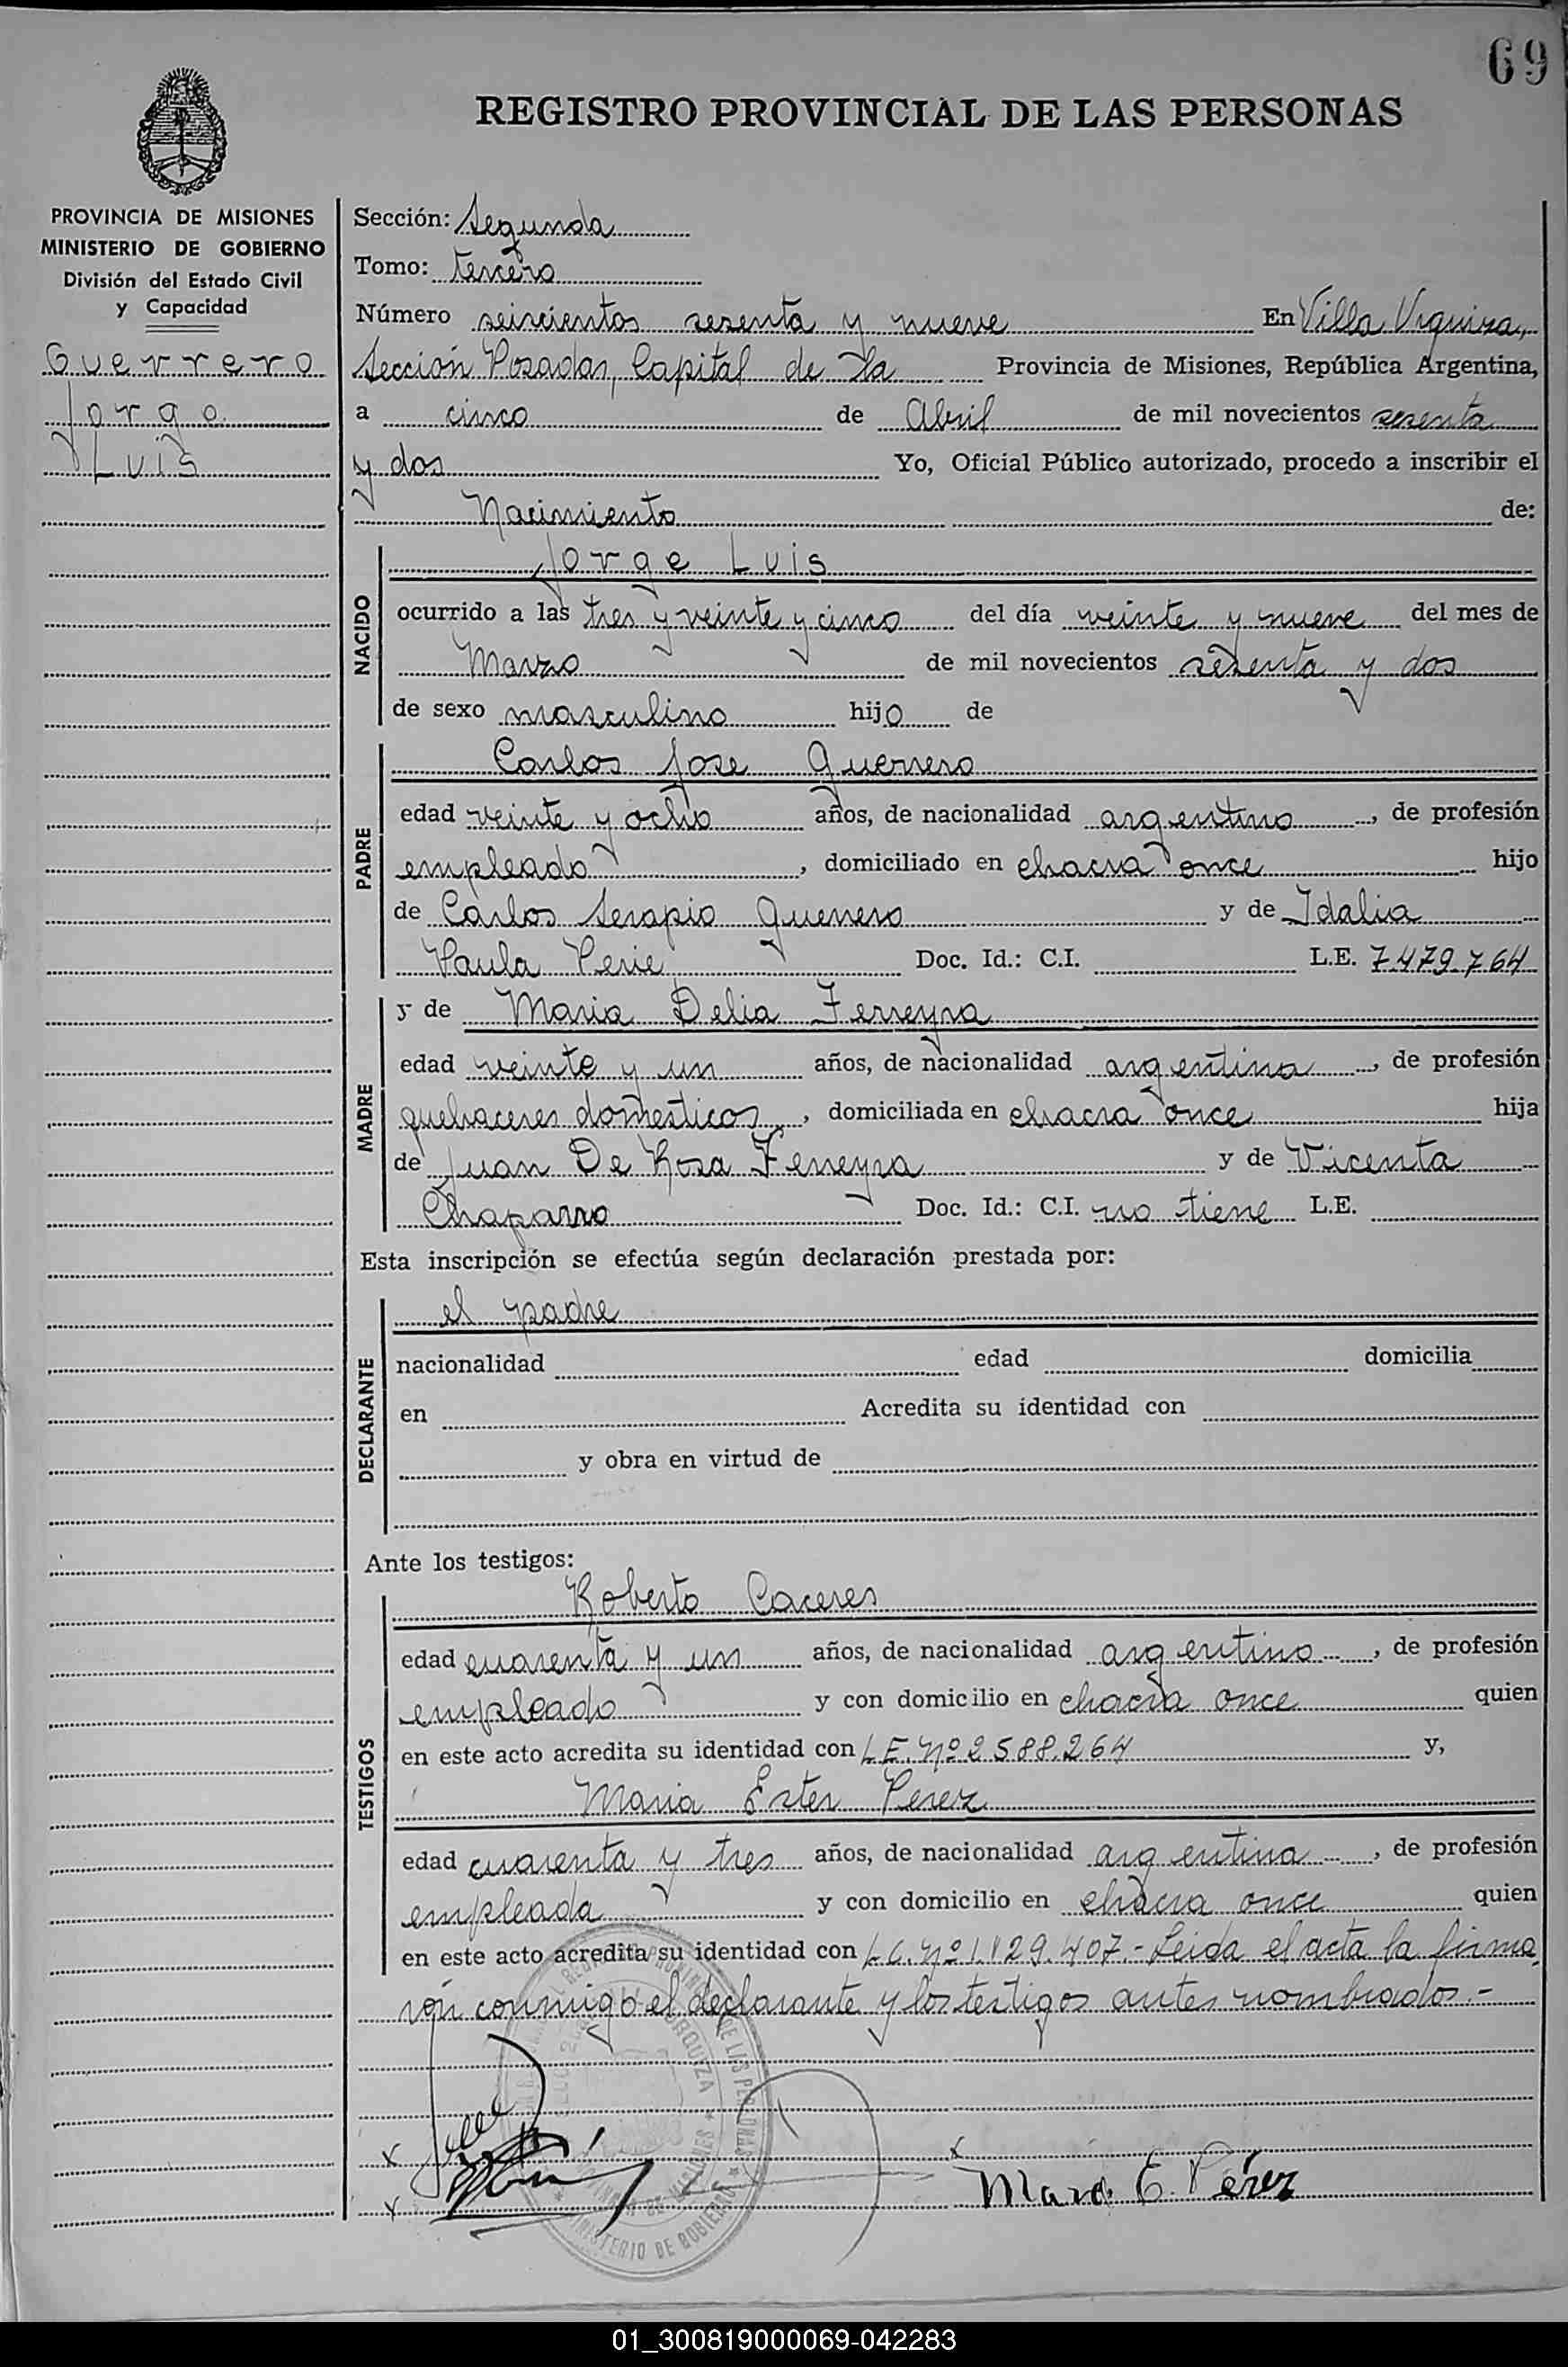 69
REGISTRO PROVINCIAL DE LAS PERSONAS
PROVINCIA DE MISIONES
MINISTERIO DE GOBIERNO
División del Estado Civil
y Capacidad
Guerrero
Jorge
Luis
Sección: Segunda
Tomo: tercero
Número seiscientos sesenta y nueve En Villa Urquiza,
Sección Posadas, Capital de la Provincia de Misiones, República Argentina,
a cinco de Abril de mil novecientos sesenta
y dos Yo, Oficial Público autorizado, procedo a inscribir el
Nacimiento de:
NACIDO
Jorge Luis
ocurrido a las tres y veinte y cinco del día veinte y nueve del mes de
Marzo de mil novecientos sesenta y dos
de sexo masculino hijo de
PADRE
Carlos Jose Guerrero
edad veinte y ocho años, de nacionalidad argentino, de profesión
empleado, domiciliado en chacra once hijo
de Carlos Serapio Guerrero y de Idalia
Paula Perie Doc. Id.: C.I. L.E. 7.479.764
MADRE
y de Maria Delia Ferreyra
edad veinte y un años, de nacionalidad argentina, de profesión
quehaceres domesticos, domiciliada en chacra once hija
de Juan De Rosa Ferreyra y de Vicenta
Chaparro Doc. Id.: C.I. no tiene L.E.
Esta inscripción se efectúa según declaración prestada por:
DECLARANTE
el padre
nacionalidad edad domicilia
en Acredita su identidad con
y obra en virtud de
Ante los testigos:
TESTIGOS
Roberto Caceres
edad cuarenta y un años, de nacionalidad argentino, de profesión
empleado y con domicilio en chacra once quien
en este acto acredita su identidad con L.E. Nº 2.588.264 y,
Maria Ester Perez
edad cuarenta y tres años, de nacionalidad argentina, de profesión
empleada y con domicilio en chacra once quien
en este acto acredita su identidad con L.C. Nº 1.129.407.- Leida el acta la firma
ron conmigo el declarante y los testigos antes nombrados.-
URQUIZA
MINISTERIO DE GOBIERNO
x
x
x
Maria E. Pérez
01_300819000069-042283